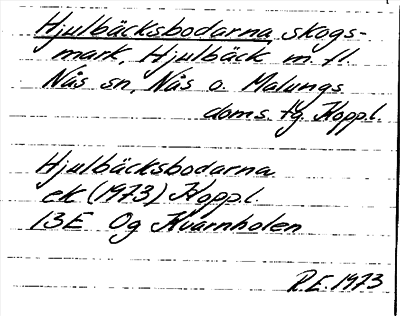 Hjulbäcksbodarna, skogs-
mark, Hjulbäck m fl.
Nås sn, Nås o. Malungs
doms. tg Koppl.
Hjulbäcksbodarna
ek (1973) Koppl.
13E Og Kvarnholen
R.E. 1973